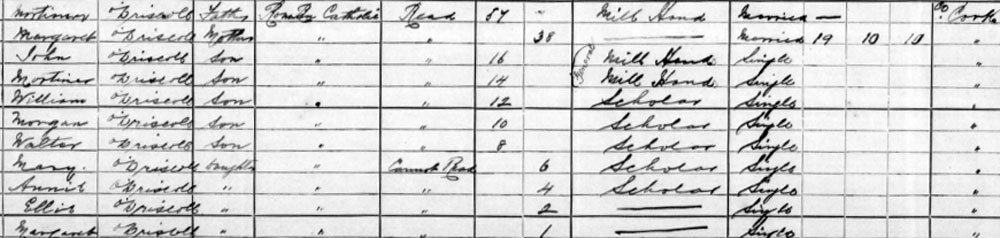 Mortimer O'Driscoll Father Roman Catholic Read 57 Mill Hand Married — Co. Cork
Margaret O'Driscoll Mother " " 38 — Married 19 10 10 "
John O'Driscoll Son " " 16 Mill Hand Single "
Mortimer O'Driscoll Son " " 14 Mill Hand Single "
William O'Driscoll Son " " 12 Scholar Single "
Morgan O'Driscoll Son " " 10 Scholar Single "
Walter O'Driscoll Son " " 8 Scholar Single "
Mary O'Driscoll Daughter " Cannot Read 6 Scholar Single "
Annie O'Driscoll " " " 4 Scholar Single "
Ellie O'Driscoll " " " 2 — Single "
Margaret O'Driscoll " " " 1 — Single "